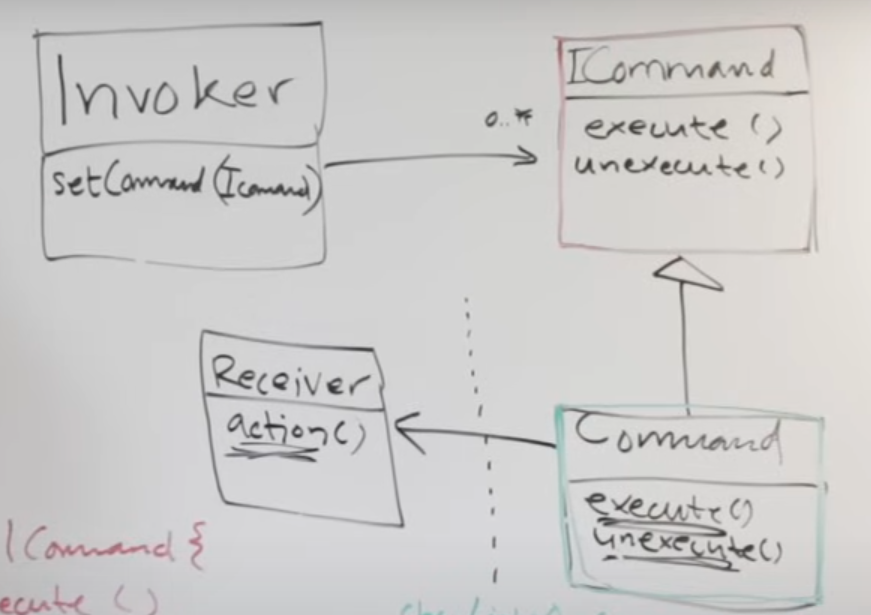 Invoker
setCommand (Icomand)
0..*
ICommand
execute ()
unexecute()
Receiver
action()
Command
execute()
unexecute()
ICommand {
ecute ()